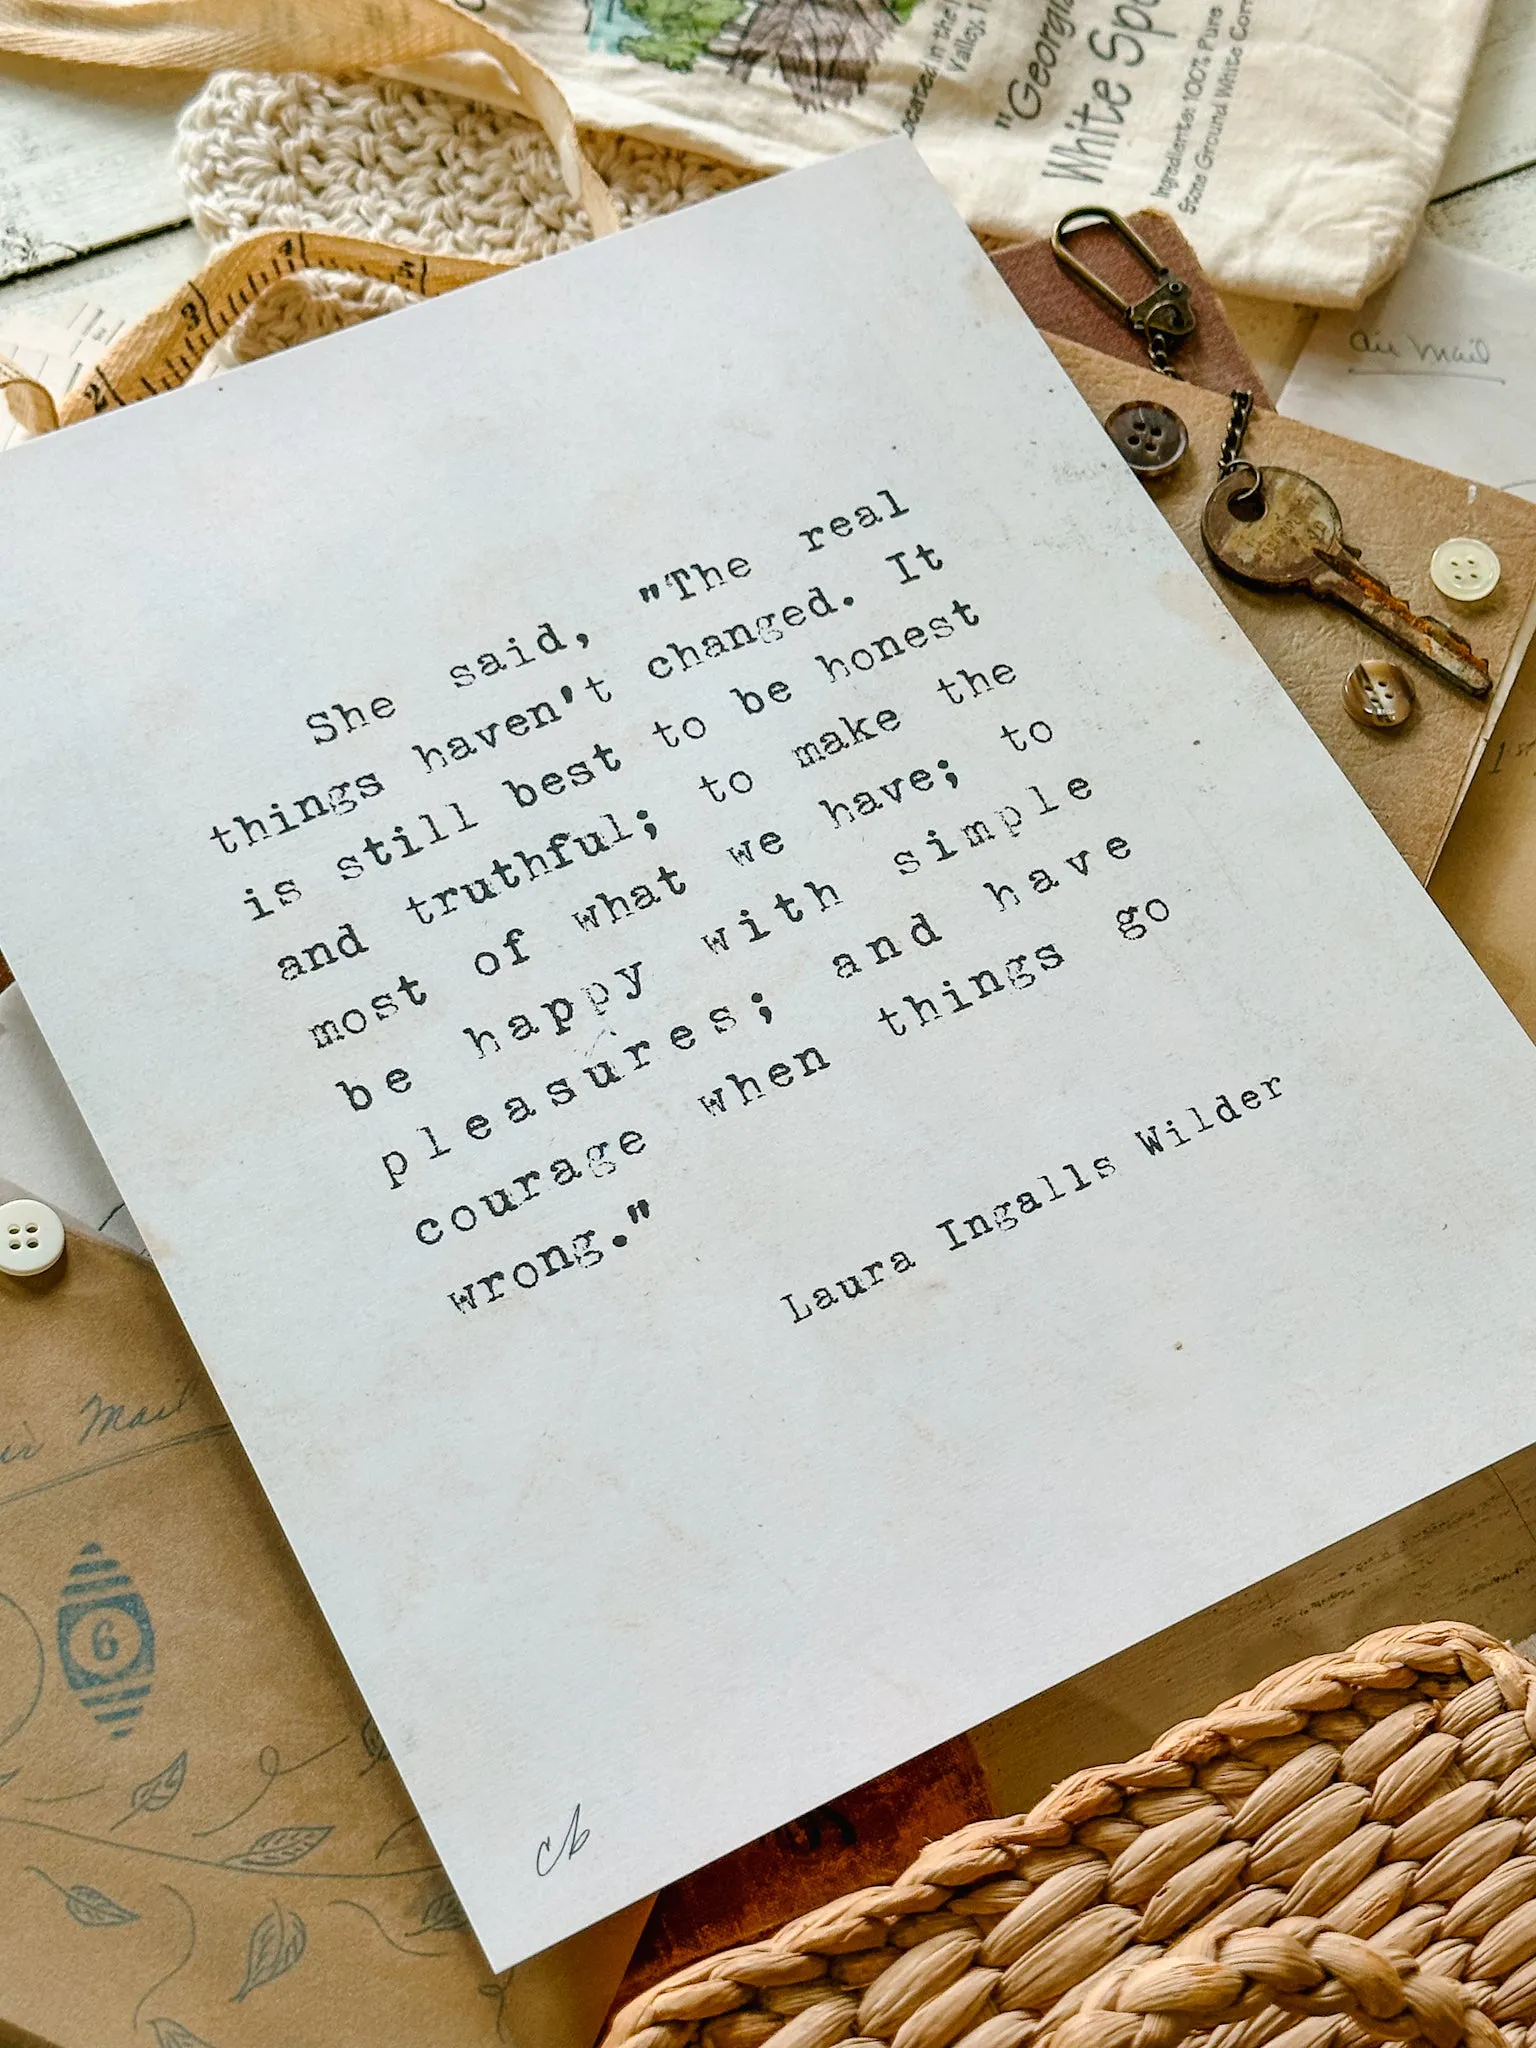 "Georgia
White Sp
Ingredients: 100% Pure
Stone Ground White Cor
Located in the
Valley, 1
Air Mail
2
3
4
5
She said, "The real
things haven't changed. It
is still best to be honest
and truthful; to make the
most of what we have; to
be happy with simple
pleasures; and have
courage when things go
wrong."
Laura Ingalls Wilder
cb
ir Mail
6